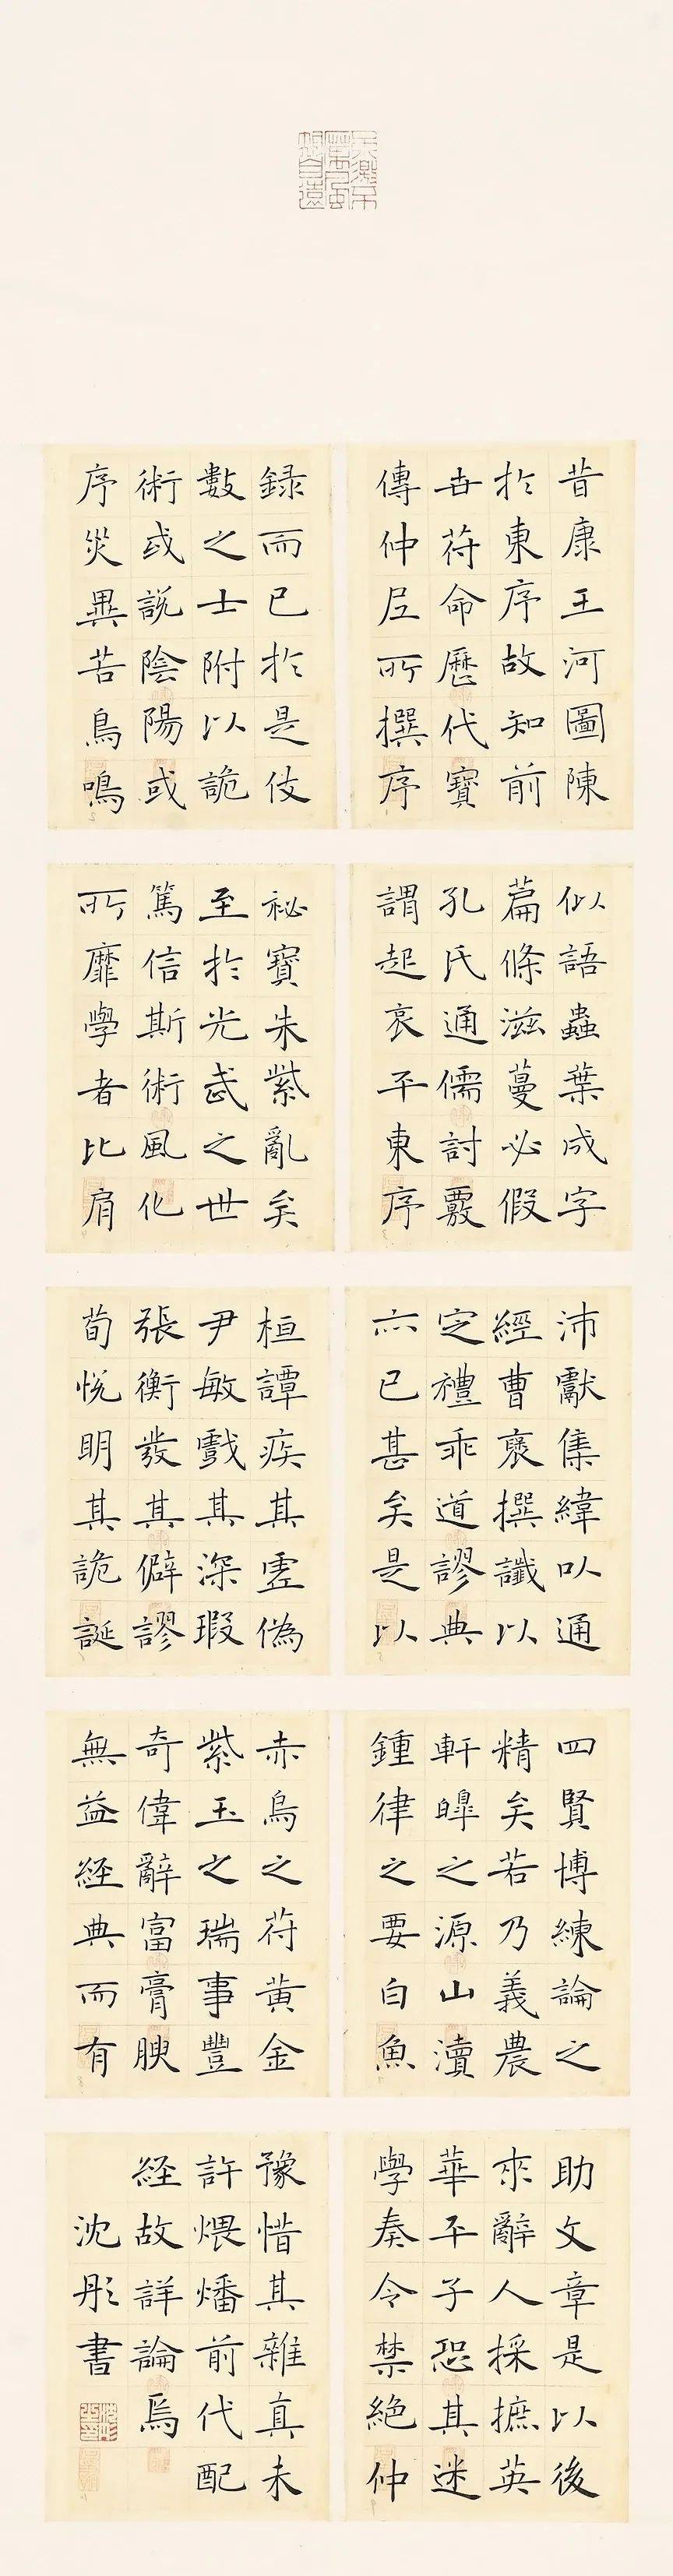 昔康王河圖陳
於東序故知前
世符命歷代寶
傳仲尼所撰序
録而已於是伎
數之士附以詭
術或說陰陽或
序災異若鳥鳴
似語蟲葉成字
篇條滋蔓必假
孔氏通儒討覈
謂起哀平東序
祕寶朱紫亂矣
至於光武之世
篤信斯術風化
所靡學者比肩
沛獻集緯以通
經曹褒撰讖以
定禮乖道謬典
亦已甚矣是以
桓譚疾其虛偽
尹敏戲其深瑕
張衡發其僻謬
荀悅明其詭誕
四賢博練論之
精矣若乃義農
軒皞之源山瀆
鍾律之要白魚
赤烏之符黄金
紫玉之瑞事豐
奇偉辭富膏腴
無益経典而有
助文章是以後
來辭人採摭英
華平子恐其迷
學奏令禁絕仲
豫惜其雜真未
許煨燔前代配
経故詳論焉
沈彤書